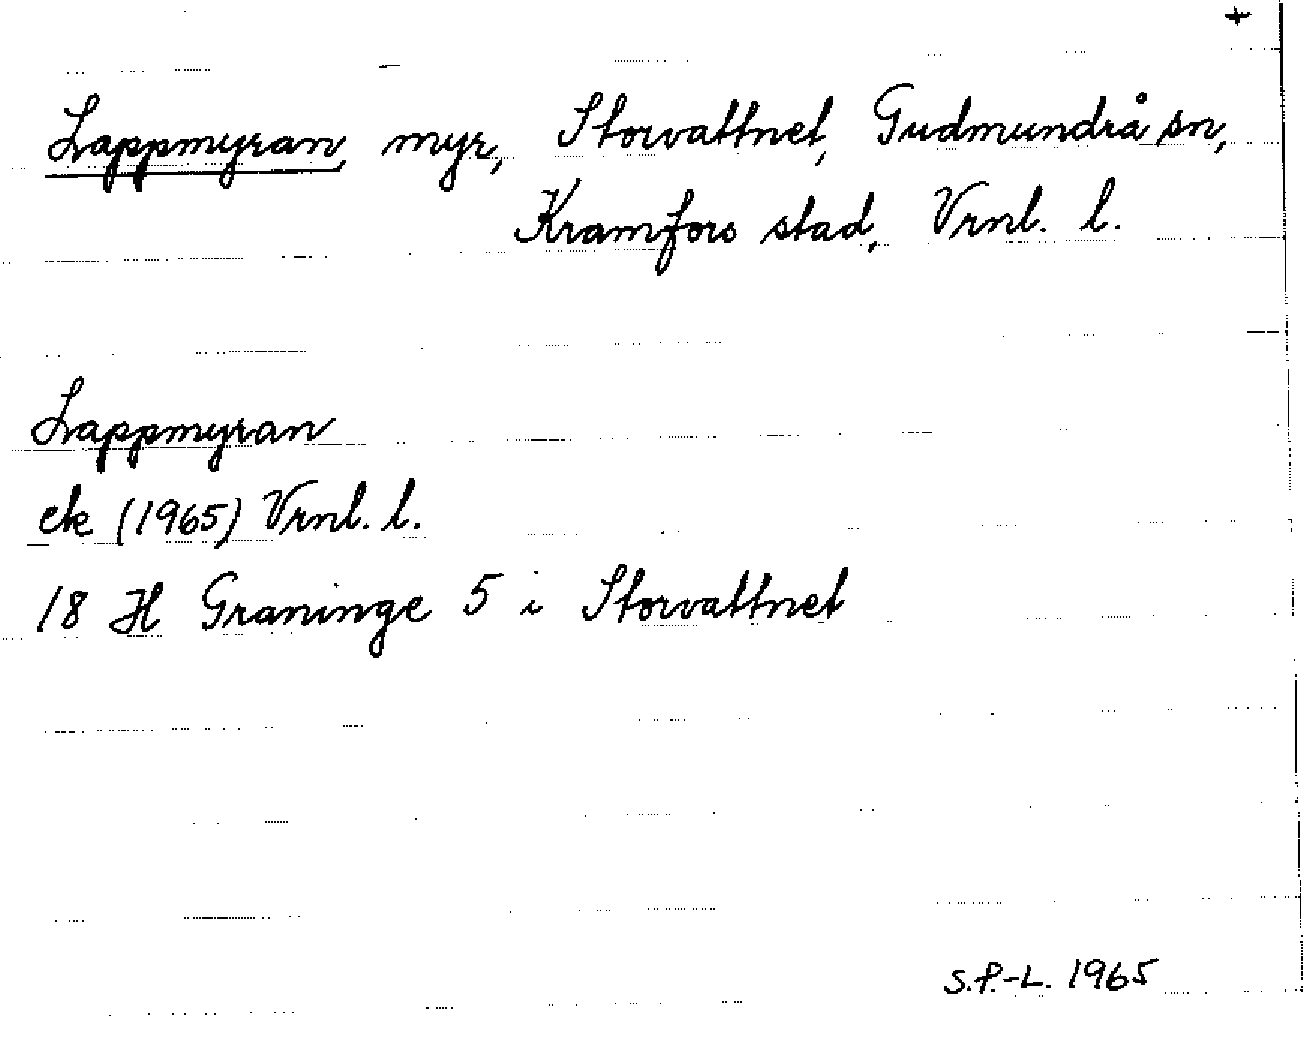 +
Lappmyran, myr, Storvattnet, Gudmundrå sn,
Kramfors stad, Vrnl. l.
Lappmyran
ek (1965) Vrnl. l.
18 H Graninge 5 i Storvattnet
S.P.-L. 1965